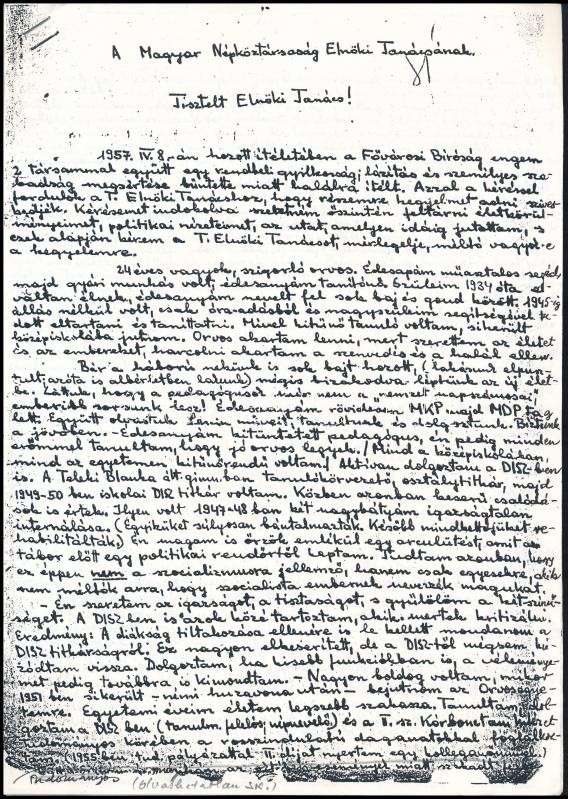 A Magyar Népköztársaság Elnöki Tanácsának.
Tisztelt Elnöki Tanács!
1957. IV. 8.-án hozott ítéletében a Fővárosi Bíróság engem
2 társammal együtt egy rendbeli gyilkosság, lázítás és személyes sza-
badság megsértése bűntette miatt halálra ítélt. Azzal a kéréssel
fordulok a T. Elnöki Tanácshoz, hogy részemre kegyelmet adni szíves-
kedjék. Kérésemet indokolva szeretném őszintén feltárni életkörül-
ményeimet, politikai nézeteimet, az utat, amelyen idáig jutottam, s
ezek alapján kérem a T. Elnöki Tanácsot, mérlegelje, méltó vagyok-e
a kegyelemre.
24 éves vagyok, szigorló orvos. Édesapám műasztalos segéd,
majd gyári munkás volt, édesanyám tanítónő. Szüleim 1934 óta el
váltan élnek, édesanyám nevelt fel sok baj és gond között. 1945-ig
állás nélkül volt, csak óra-adásból és nagyszüleim segítségével tu-
dott eltartani és taníttatni. Mivel kitűnő tanuló voltam, sikerült
középiskolába jutnom. Orvos akartam lenni, mert szerettem az életet
és az embereket, harcolni akartam a szenvedés és a halál ellen.
Bár a háború nekünk is sok bajt hozott, (lakásunk elpusz-
tult, azóta is albérletben lakunk) mégis bizakodva léptünk az új élet-
be. Láttuk, hogy a pedagógusok már nem a "nemzet napszámosai"
emberibb sorsunk lesz! Édesanyám rövidesen MKP majd MDP tag
lett. Együtt olvastuk Lenin műveit, tanultunk és dolgoztunk. Bíztunk
a jövőben. - Édesanyám kitüntetett pedagógus, én pedig minden
erőmmel tanultam, hogy jó orvos legyek. / Mind a középiskolában,
mind az egyetemen kitűnőrendű voltam / Aktívan dolgoztam a DISZ-ben
is. A Teleki Blanka ált. gimn.ban tanulókörvezető, osztálytitkár, majd
1949-50 ben iskolai DISZ titkár voltam. Közben azonban keserű csalódá-
sok is értek. Ilyen volt 1947-48 ban két nagybátyám igazságtalan
internálása. (Egyiküket súlyosan bántalmazták. Később mindkettőjüket re-
habilitálták.) Én magam is őrzök emlékül egy arculütést, amit a
tábor előtt egy politikai rendőrtől kaptam. Tudtam azonban, hogy
ez éppen nem a szocializmusra jellemző, hanem csak egyesekre, akik
nem méltók arra, hogy szocialista embernek nevezzék magukat.
- Én szeretem az igazságot, a tisztaságot, s gyűlölöm a kétszínű-
séget. A DISZ-ben is azok közé tartoztam, akik mertek kritizálni.
Eredmény: A diákság tiltakozása ellenére is le kellett mondanom a
DISZ titkárságról. Ez nagyon elkeserített, de a DISZ-től mégsem hú-
zódtam vissza. Dolgoztam, ha kisebb funkcióban is, a véleménye-
met pedig továbbra is kimondtam. - Nagyon boldog voltam, mikor
1951 ben sikerült - némi huzavona után - bejutnom az Orvosegye-
temre. Egyetemi éveim életem legszebb szakasza. Tanultam, dol-
goztam a DISZ ben (tanulm. felelős, népnevelő) és a II. sz. Kórbonctan. Intézet
tudományos körében a rosszindulatú daganatokkal foglalkoz-
tam. (1955 ben tud. pályázattal II. díjat nyertem egy kolleganőmmel.)
Tudományos
(olvashatatlan sor.)